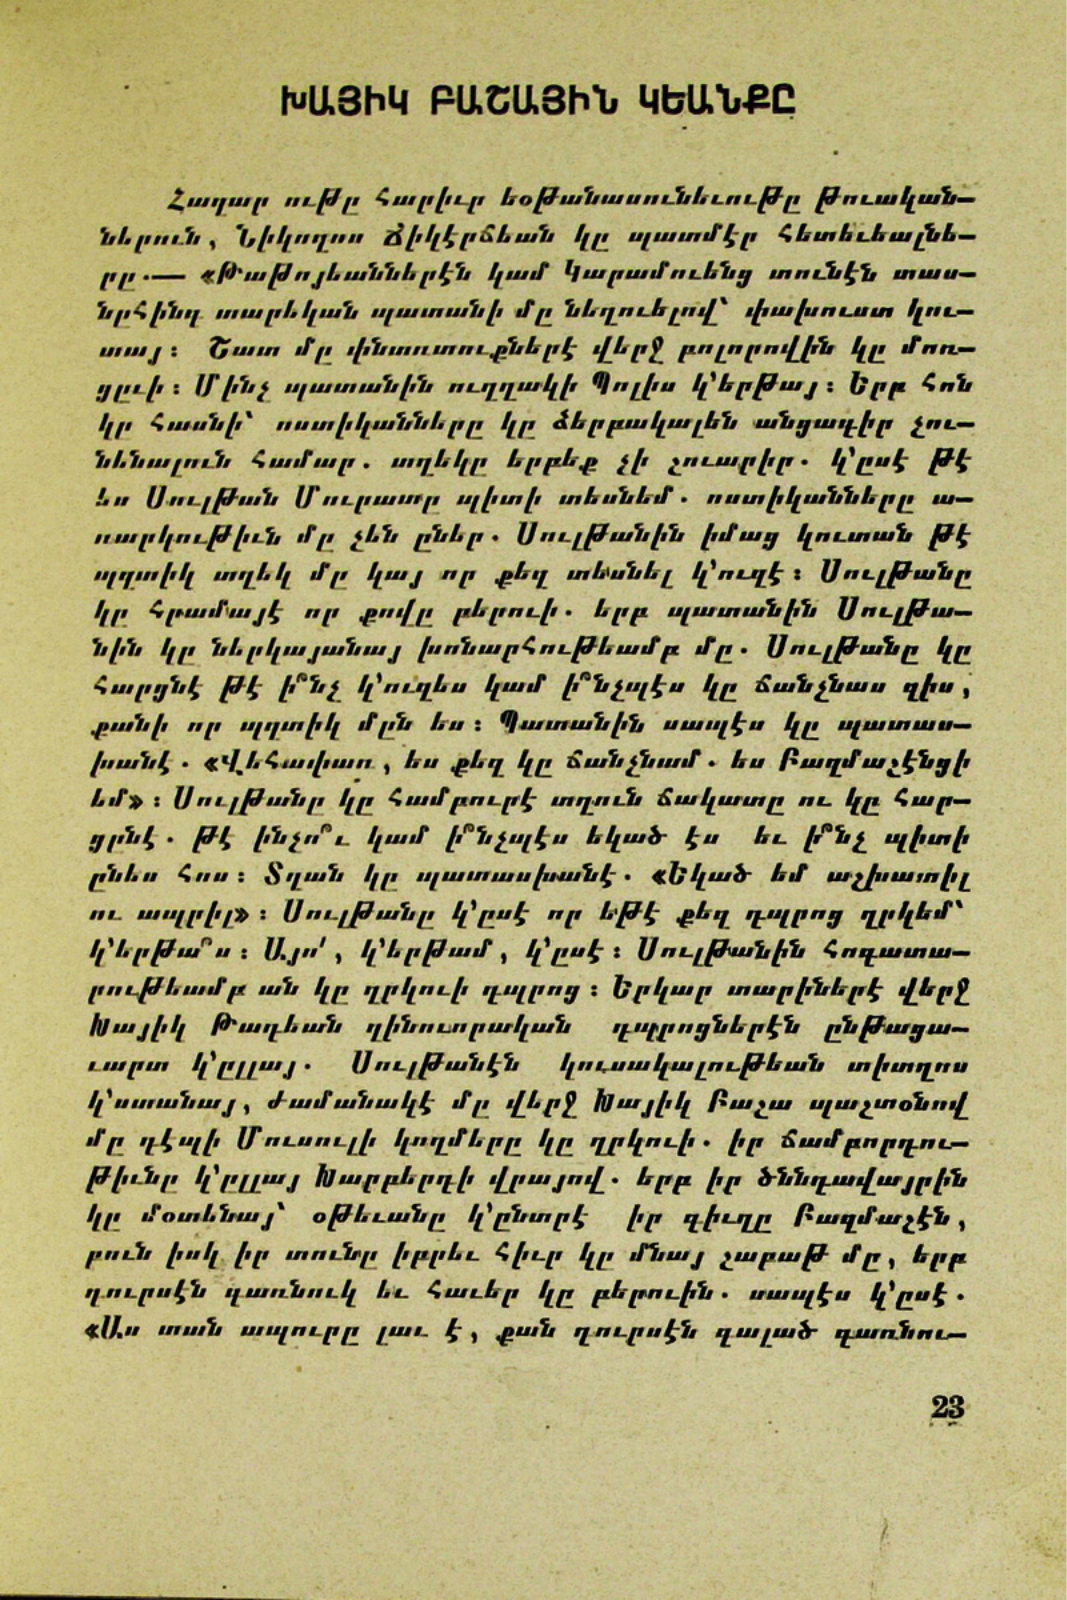 ԽԱՅԻԿ ԲԱՇԱՅԻՆ ԿԵԱՆՔԸ
Հազար ութը հարիւր եօթանասունեւութը թուական–
ներուն, Նիկողոս Ճիկէրճեան կը պատմէր հետեւեալնե–
րը.— «Թաթոյեաններէն կամ Կարամուենց տունէն տաս–
նըհինգ տարեկան պատանի մը նեղուելով՝ փախուստ կու–
տայ։ Շատ մը փնտռտուքներէ վերջ բոլորովին կը մոռ–
ցըւի։ Մինչ պատանին ուղղակի Պոլիս կ՚երթայ։ Երբ հոն
կը հասնի՝ ոստիկանները կը ձերբակալեն անցագիր չու–
նենալուն համար. տղեկը երբեք չի շուարիր. կ՚ըսէ թէ
ես Սուլթան Մուրատը պիտի տեսնեմ. ոստիկանները ա–
ռարկութիւն մը չեն ըներ. Սուլթանին իմաց կուտան թէ
պզտիկ տղեկ մը կայ որ քեզ տեսնել կ՚ուզէ։ Սուլթանը
կը հրամայէ որ քովը բերուի. երբ պատանին Սուլթա–
նին կը ներկայանայ խոնարհութեամբ մը. Սուլթանը կը
հարցնէ թէ ի՞նչ կ՚ուզես կամ ի՞նչպէս կը ճանչնաս զիս,
քանի որ պզտիկ մըն ես։ Պատանին սապէս կը պատաս–
խանէ. «Վեհափառ, ես քեզ կը ճանչնամ. ես Բազմաշէնցի
եմ»։ Սուլթանը կը համբուրէ տղուն ճակատը ու կը հար–
ցընէ. թէ ինչո՞ւ կամ ի՞նչպէս եկած էս եւ ի՞նչ պիտի
ընես հոս։ Տղան կը պատասխանէ. «Եկած եմ աշխատիլ
ու ապրիլ»։ Սուլթանը կ՚ըսէ որ եթէ քեզ դպրոց ղրկեմ՝
կ՚երթա՞ս։ Այո՛, կ՚երթամ, կ՚ըսէ։ Սուլթանին հոգատա–
րութեամբ ան կը ղրկուի դպրոց։ Երկար տարիներէ վերջ
Խայիկ Թադեան զինուորական դպրոցներէն ընթացա–
ւարտ կ՚ըլլայ. Սուլթանէն կուսակալութեան տիտղոս
կ՚ստանայ, ժամանակէ մը վերջ Խայիկ Բաշա պաշտօնով
մը դէպի Մուսուլի կողմերը կը ղրկուի. իր ճամբորդու–
թիւնը կ՚ըլլայ Խարբերդի վրայով. երբ իր ծննդավայրին
կը մօտենայ՝ օթեւանը կ՚ընտրէ իր գիւղը Բազմաշէն,
բուն իսկ իր տունը իբրեւ հիւր կը մնայ շաբաթ մը, երբ
դուրսէն գառնուկ եւ հաւեր կը բերուին. սապէս կ՚ըսէ.
«Աս տան ապուրը լաւ է, քան դուրսէն գալած գառնու–
23